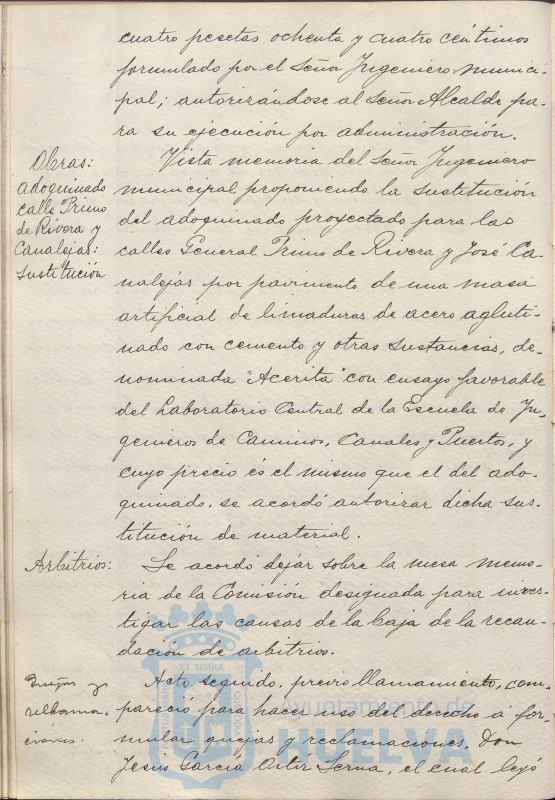 cuatro pesetas ochenta y cuatro céntimos
formulado por el Señor Ingeniero munici-
pal; autorizándose al Señor Alcalde pa-
ra su ejecución por administración.
Obras:
adoquinado
calle Primo
de Rivera y
Canalejas:
sustitución
Vista memoria del Señor Ingeniero
municipal proponiendo la sustitución
del adoquinado proyectado para las
calles General Primo de Rivera y José Ca-
nalejas por pavimento de una masa
artificial de limaduras de acero agluti-
nado con cemento y otras sustancias, de-
nominada "Acerita" con ensayo favorable
del Laboratorio Central de la Escuela de In-
genieros de Caminos, Canales y Puertos, y
cuyo precio és el mismo que el del ado-
quinado, se acordó autorizar dicha sus-
titución de material.
Arbitrios:
Se acordó dejar sobre la mesa memo-
ria de la Comisión designada para inves-
tigar las causas de la baja de la recau-
dación de arbitrios.
Quejas y
reclama-
ciones.
Acto seguido, previo llamamiento, com-
pareció para hacer uso del derecho á for-
mular quejas y reclamaciones, Don
Jesús García Ortíz Serna, el cual leyó
ET TERRA
Ayuntamiento de
HUELVA